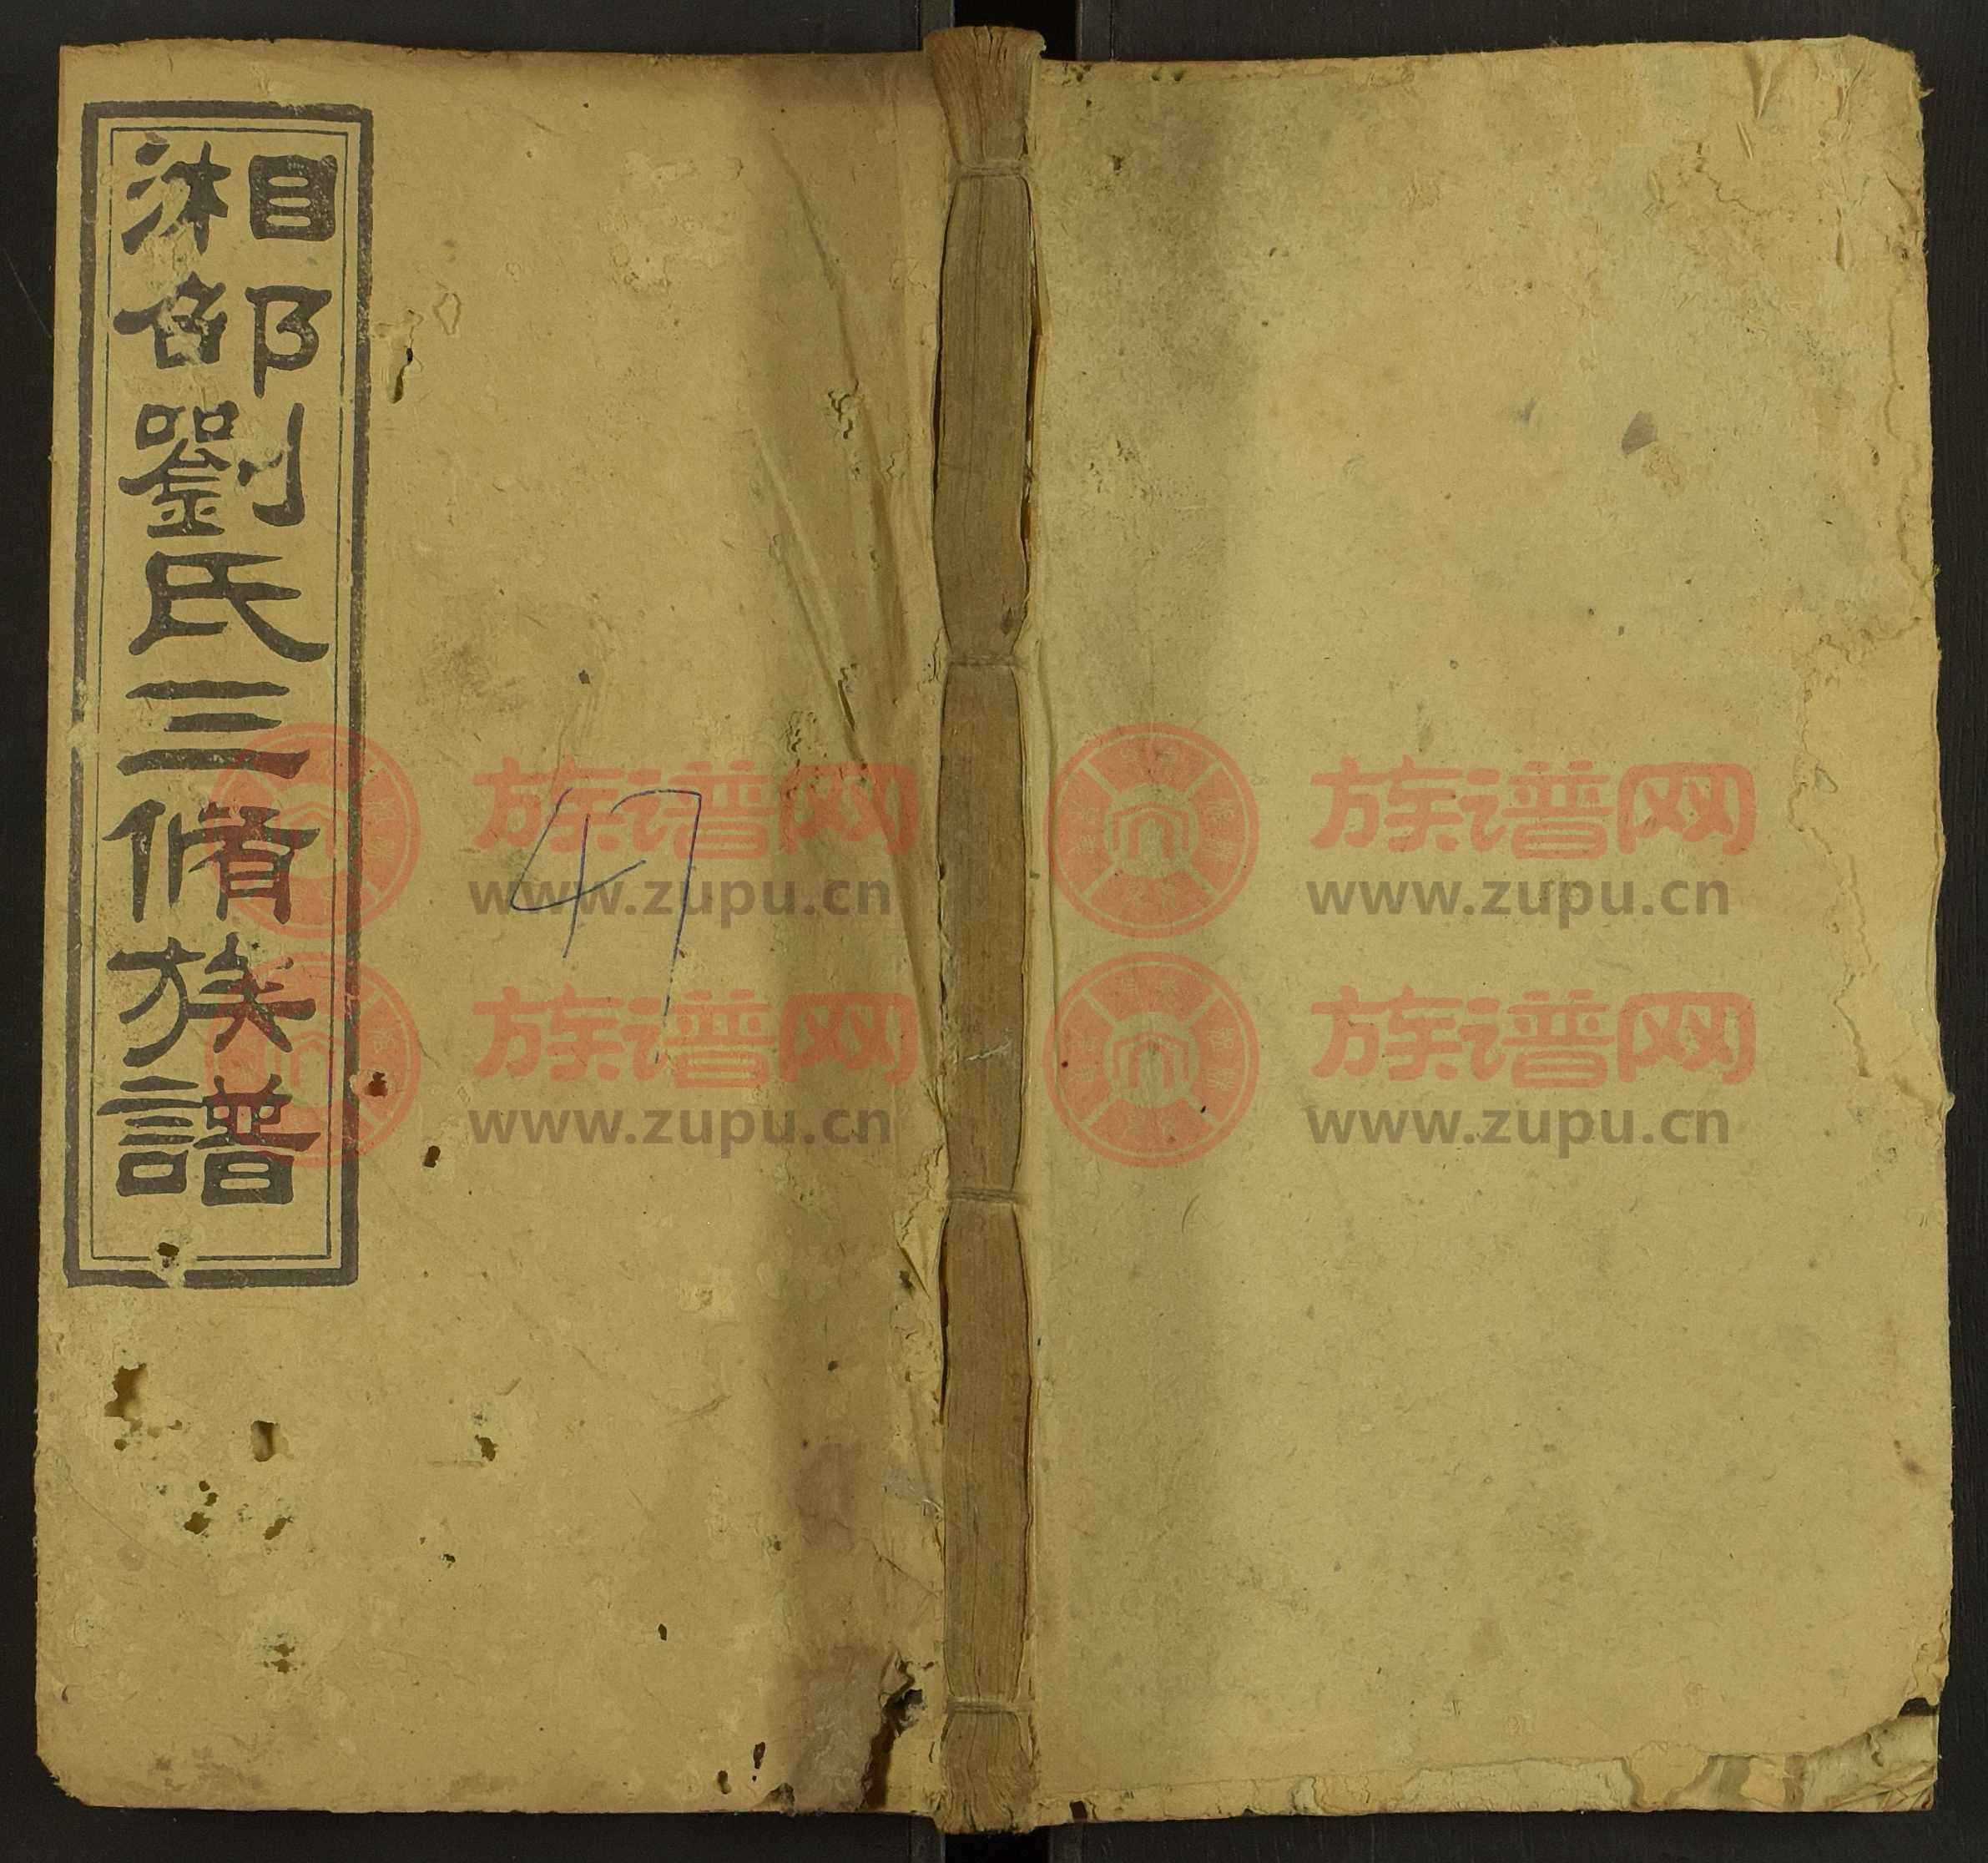 湘邵劉氏三脩族譜
47
族谱网
www.zupu.cn
族谱网
www.zupu.cn
族谱网
www.zupu.cn
族谱网
www.zupu.cn